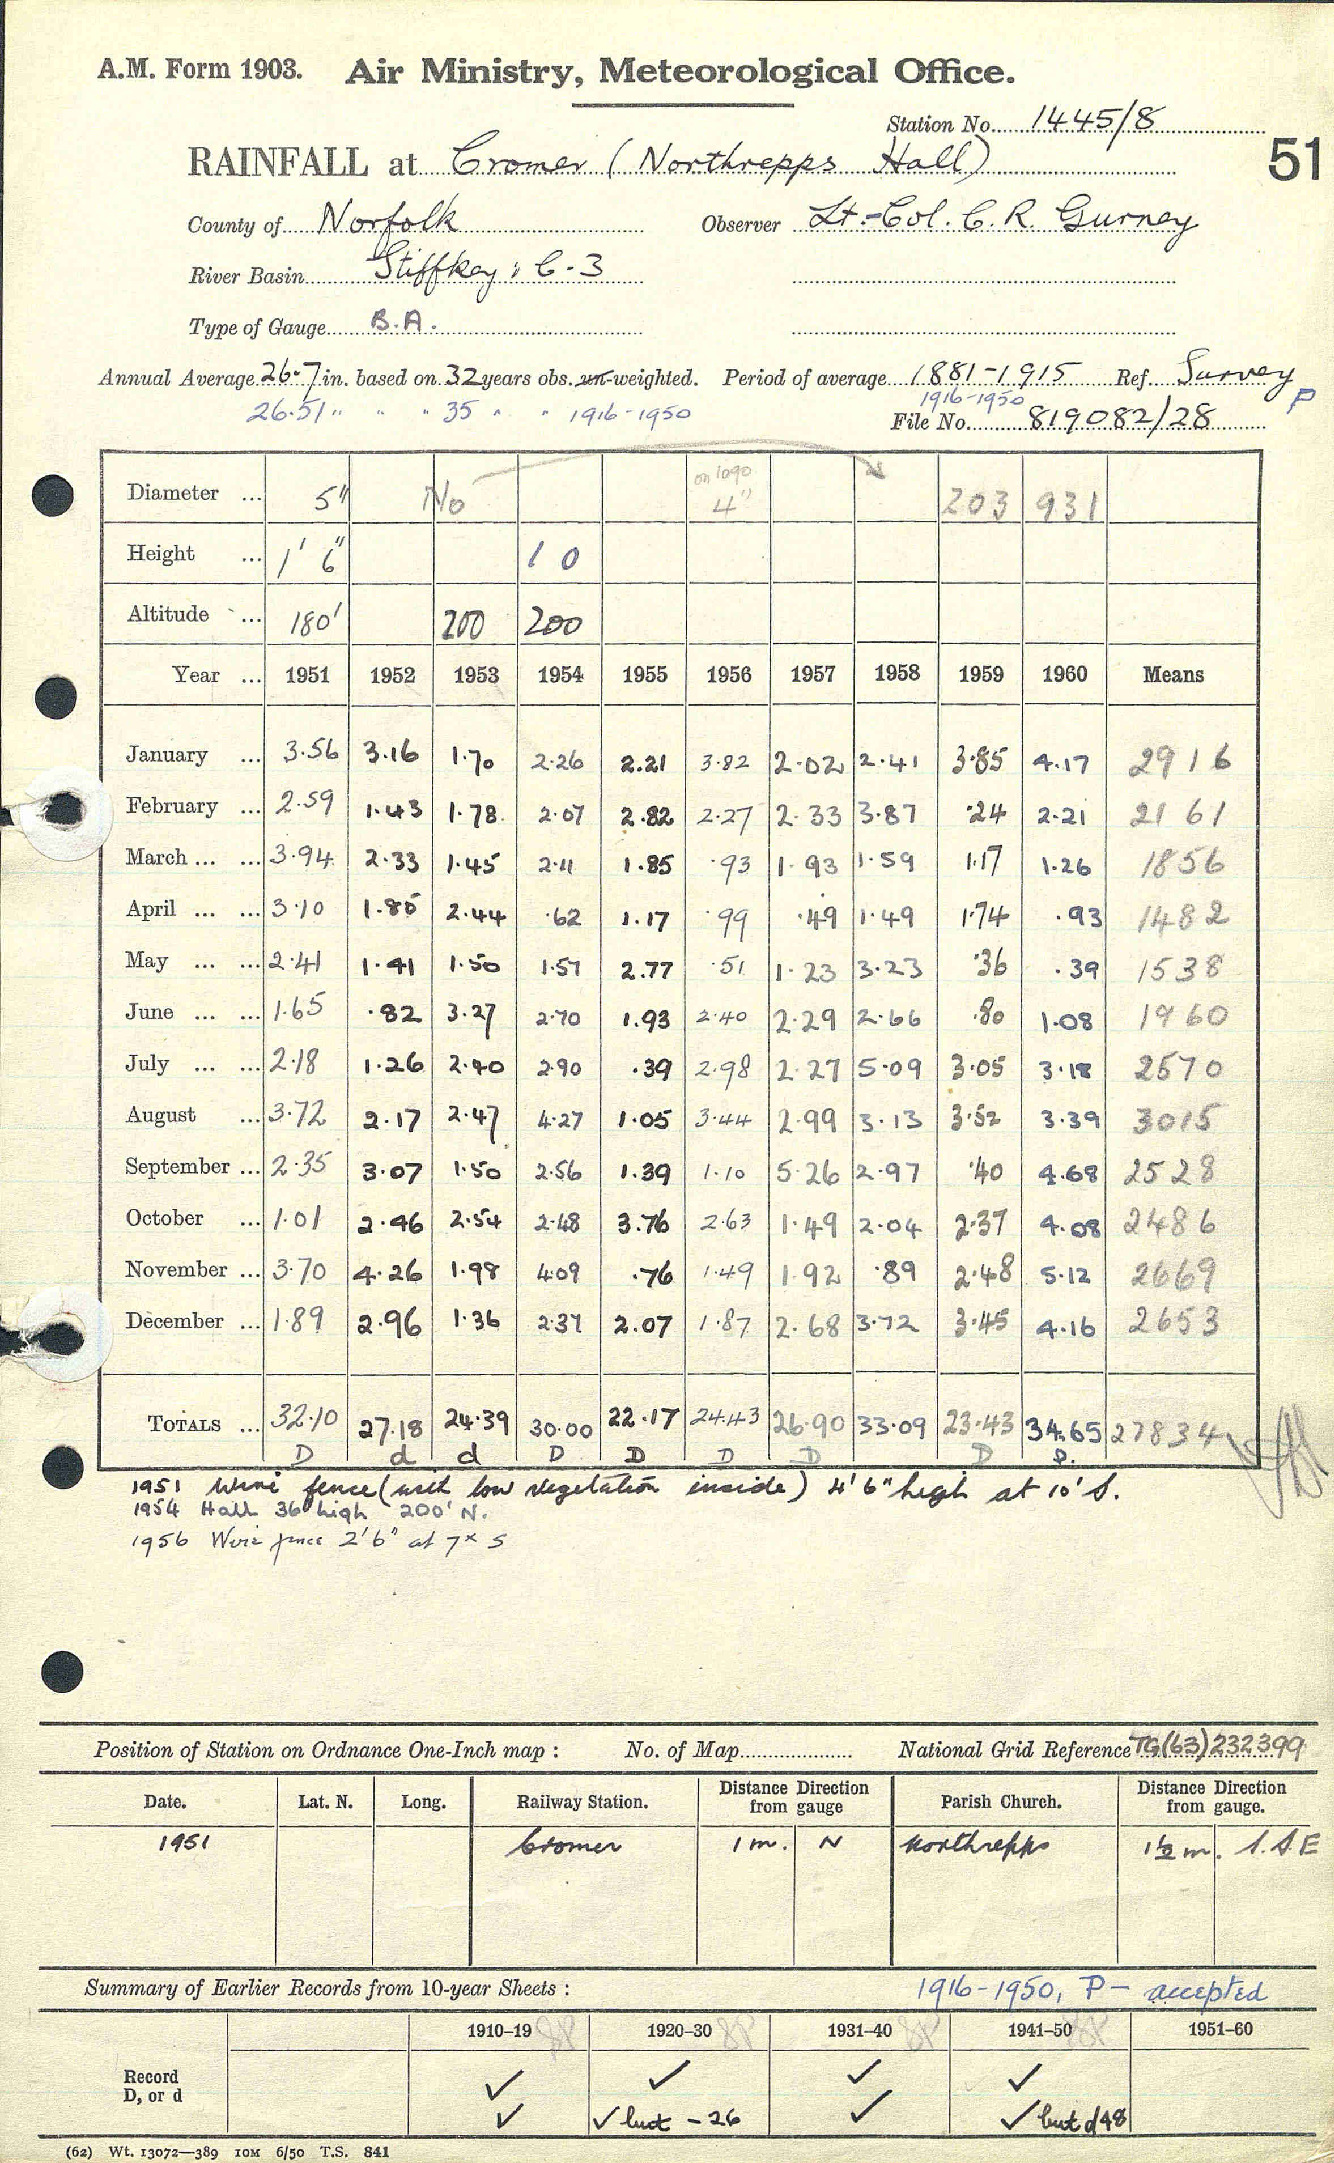 A.M. Form 1903. Air Ministry, Meteorological Office.
Station No. 1445/8
RAINFALL at Cromer (Northrepps Hall)
51
County of Norfolk Observer Lt.-Col. C. R. Gurney
River Basin Stiffkey, C-3
Type of Gauge B.A.
Annual Average 26.7 in. based on 32 years obs. un-weighted. Period of average 1881-1915 Ref. Survey
26.51 " " " 35 " " 1916-1950 1916-1950 P
File No. 819082/28
Diameter ... 5" No on 1090 4" 203 931
Height ... 1' 6" 1 0
Altitude ... 180' 200 200
Year ... 1951 1952 1953 1954 1955 1956 1957 1958 1959 1960 Means
January ... 3.56 3.16 1.70 2.26 2.21 3.82 2.02 2.41 3.85 4.17 2916
February ... 2.59 1.43 1.78 2.07 2.82 2.27 2.33 3.87 .24 2.21 2161
March ... ... 3.94 2.33 1.45 2.11 1.85 .93 1.93 1.59 1.17 1.26 1856
April ... ... 3.10 1.85 2.44 .62 1.17 .99 .49 1.49 1.74 .93 1482
May ... ... 2.41 1.41 1.50 1.57 2.77 .51 1.23 3.23 .36 .39 1538
June ... ... 1.65 .82 3.27 2.70 1.93 2.40 2.29 2.66 .80 1.08 1960
July ... ... 2.18 1.26 2.40 2.90 .39 2.98 2.27 5.09 3.05 3.18 2570
August ... 3.72 2.17 2.47 4.27 1.05 3.44 2.99 3.13 3.52 3.39 3015
September ... 2.35 3.07 1.50 2.56 1.39 1.10 5.26 2.97 .40 4.68 2528
October ... 1.01 2.46 2.54 2.48 3.76 2.63 1.49 2.04 2.37 4.08 2486
November ... 3.70 4.26 1.98 4.09 .76 1.49 1.92 .89 2.48 5.12 2669
December ... 1.89 2.96 1.36 2.37 2.07 1.87 2.68 3.72 3.45 4.16 2653
TOTALS ... 32.10 27.18 24.39 30.00 22.17 24.43 26.90 33.09 23.43 34.65 27834
D d d D D D D D P.
1951 Wire fence (with low vegetation inside) 4'6" high at 10' S.
1954 Hall 36' high 200' N.
1956 Wire fence 2'6" at 7x S
Position of Station on Ordnance One-Inch map : No. of Map National Grid Reference TG(63)232399
Date. Lat. N. Long. Railway Station. Distance Direction from gauge Parish Church. Distance Direction from gauge.
1951 Cromer 1 m. N Northrepps 1½ m. S.S.E
Summary of Earlier Records from 10-year Sheets : 1916-1950, P- accepted
1910-19 1920-30 1931-40 1941-50 1951-60
Record ✓ ✓ ✓ ✓
D, or d ✓ ✓ but - 26 ✓ ✓ but d48
(62) Wt. 13072—389 10M 6/50 T.S. 841